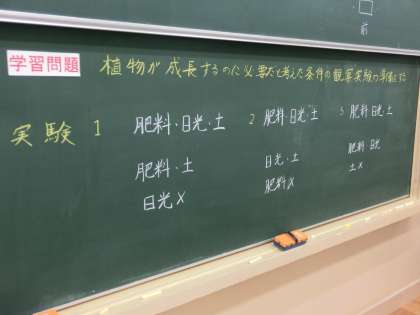 前
学習問題 植物が成長するのに必要だと考えた条件の観察実験の準備をする
実験 1 肥料・日光・土 2 肥料・日光・土 3 肥料・日光・土
肥料・土 日光・土 肥料・日光
日光× 肥料× 土×